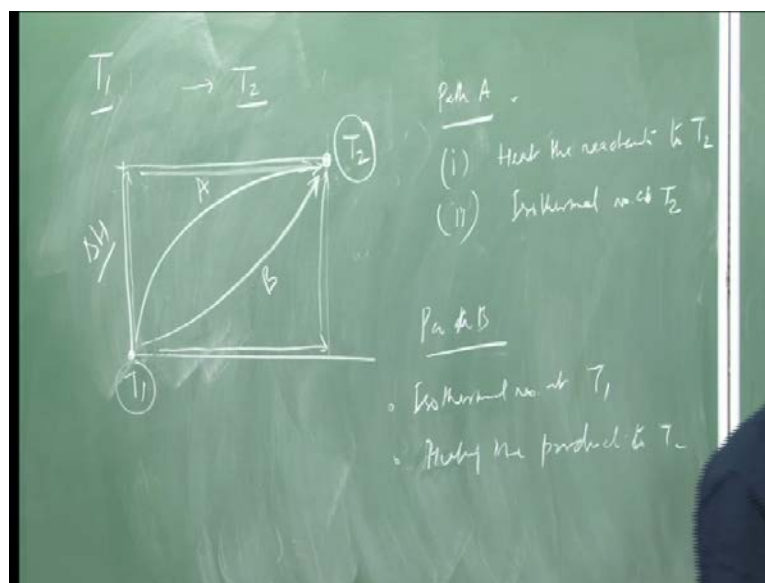 T₁ → T₂
T₂
A
ΔH
B
T₁
Path A.
(i) Heat the reactants to T₂
(ii) Isothermal rxn at T₂
Path B
Isothermal rxn at T₁
the product to T₂